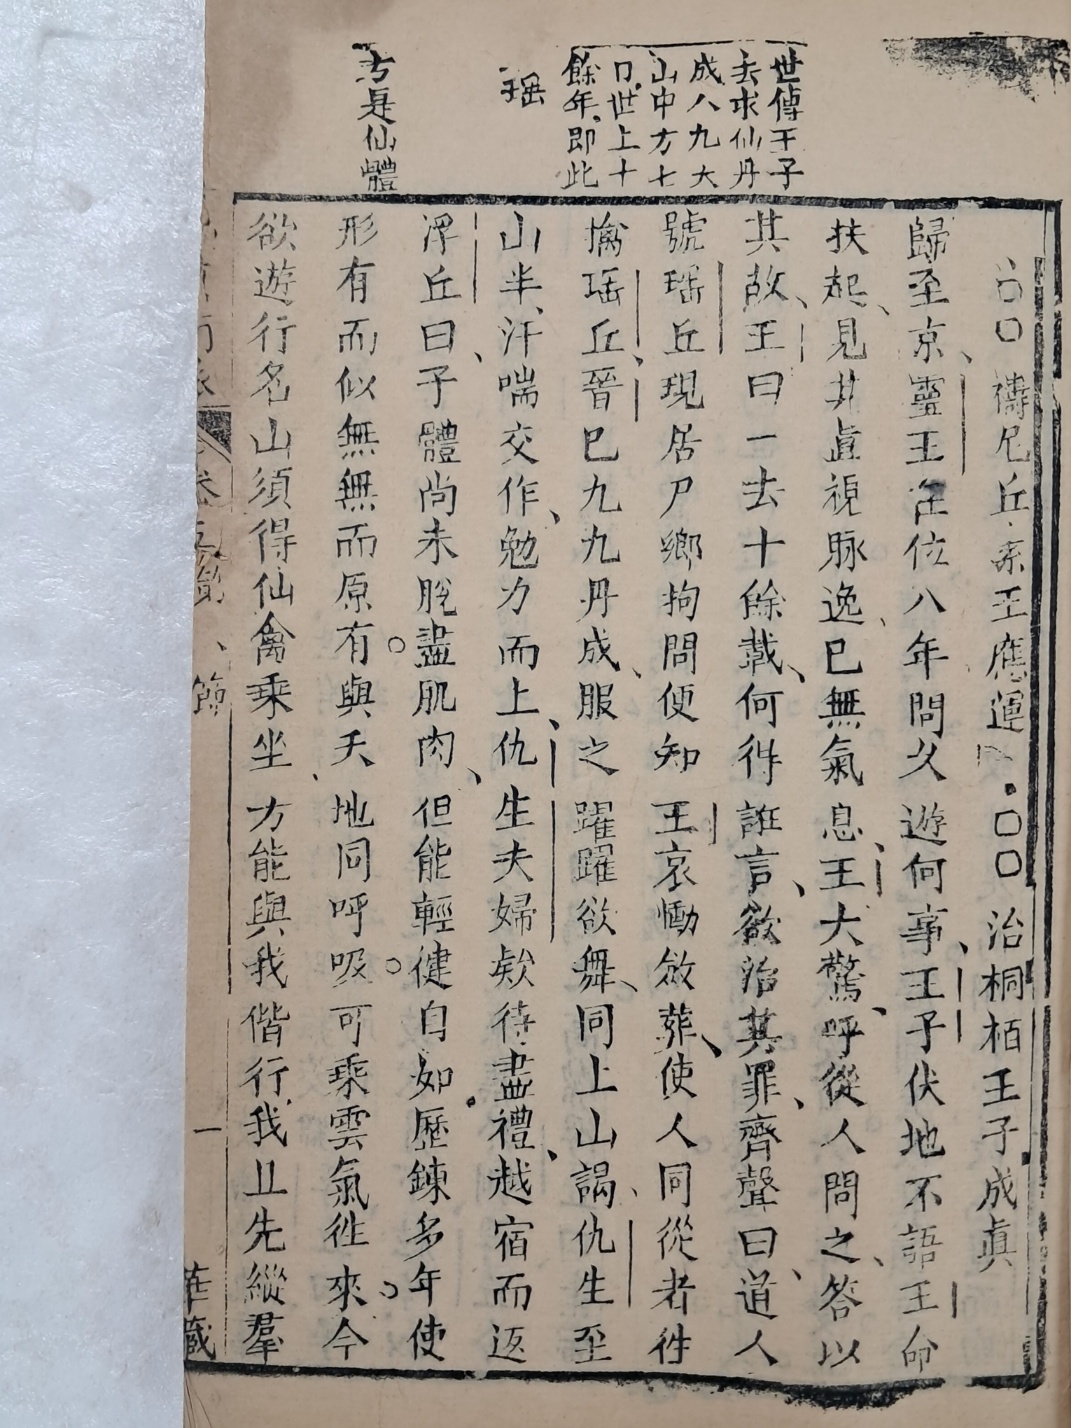 世傳王子
去求仙丹
成八九大
山中方七
日世上十
餘年即此
瑶
方是仙體
禱尼丘素王應運 治桐栢王子成眞
歸至京靈王在位八年問久遊何事王子伏地不語王命
扶起見其眞視脉逸已無氣息王大驚呼從人問之答以
其故王曰一去十餘載何得誑言欲治其罪齊聲曰道人
號瑶丘現居尸鄉拘問便知王哀慟斂葬使人同從者徃
擒瑶丘晉已九九丹成服之躍躍欲舞同上山謁仇生至
山半汗喘交作勉力而上仇生夫婦欵待盡禮越宿而返
浮丘曰子體尚未脫盡肌肉但能輕健自如歷鍊多年使
形有而似無無而原有與天地同呼吸可乘雲氣徃來今
欲遊行名山須得仙禽乘坐方能與我偕行我且先縱羣
卷 節 一 華藏